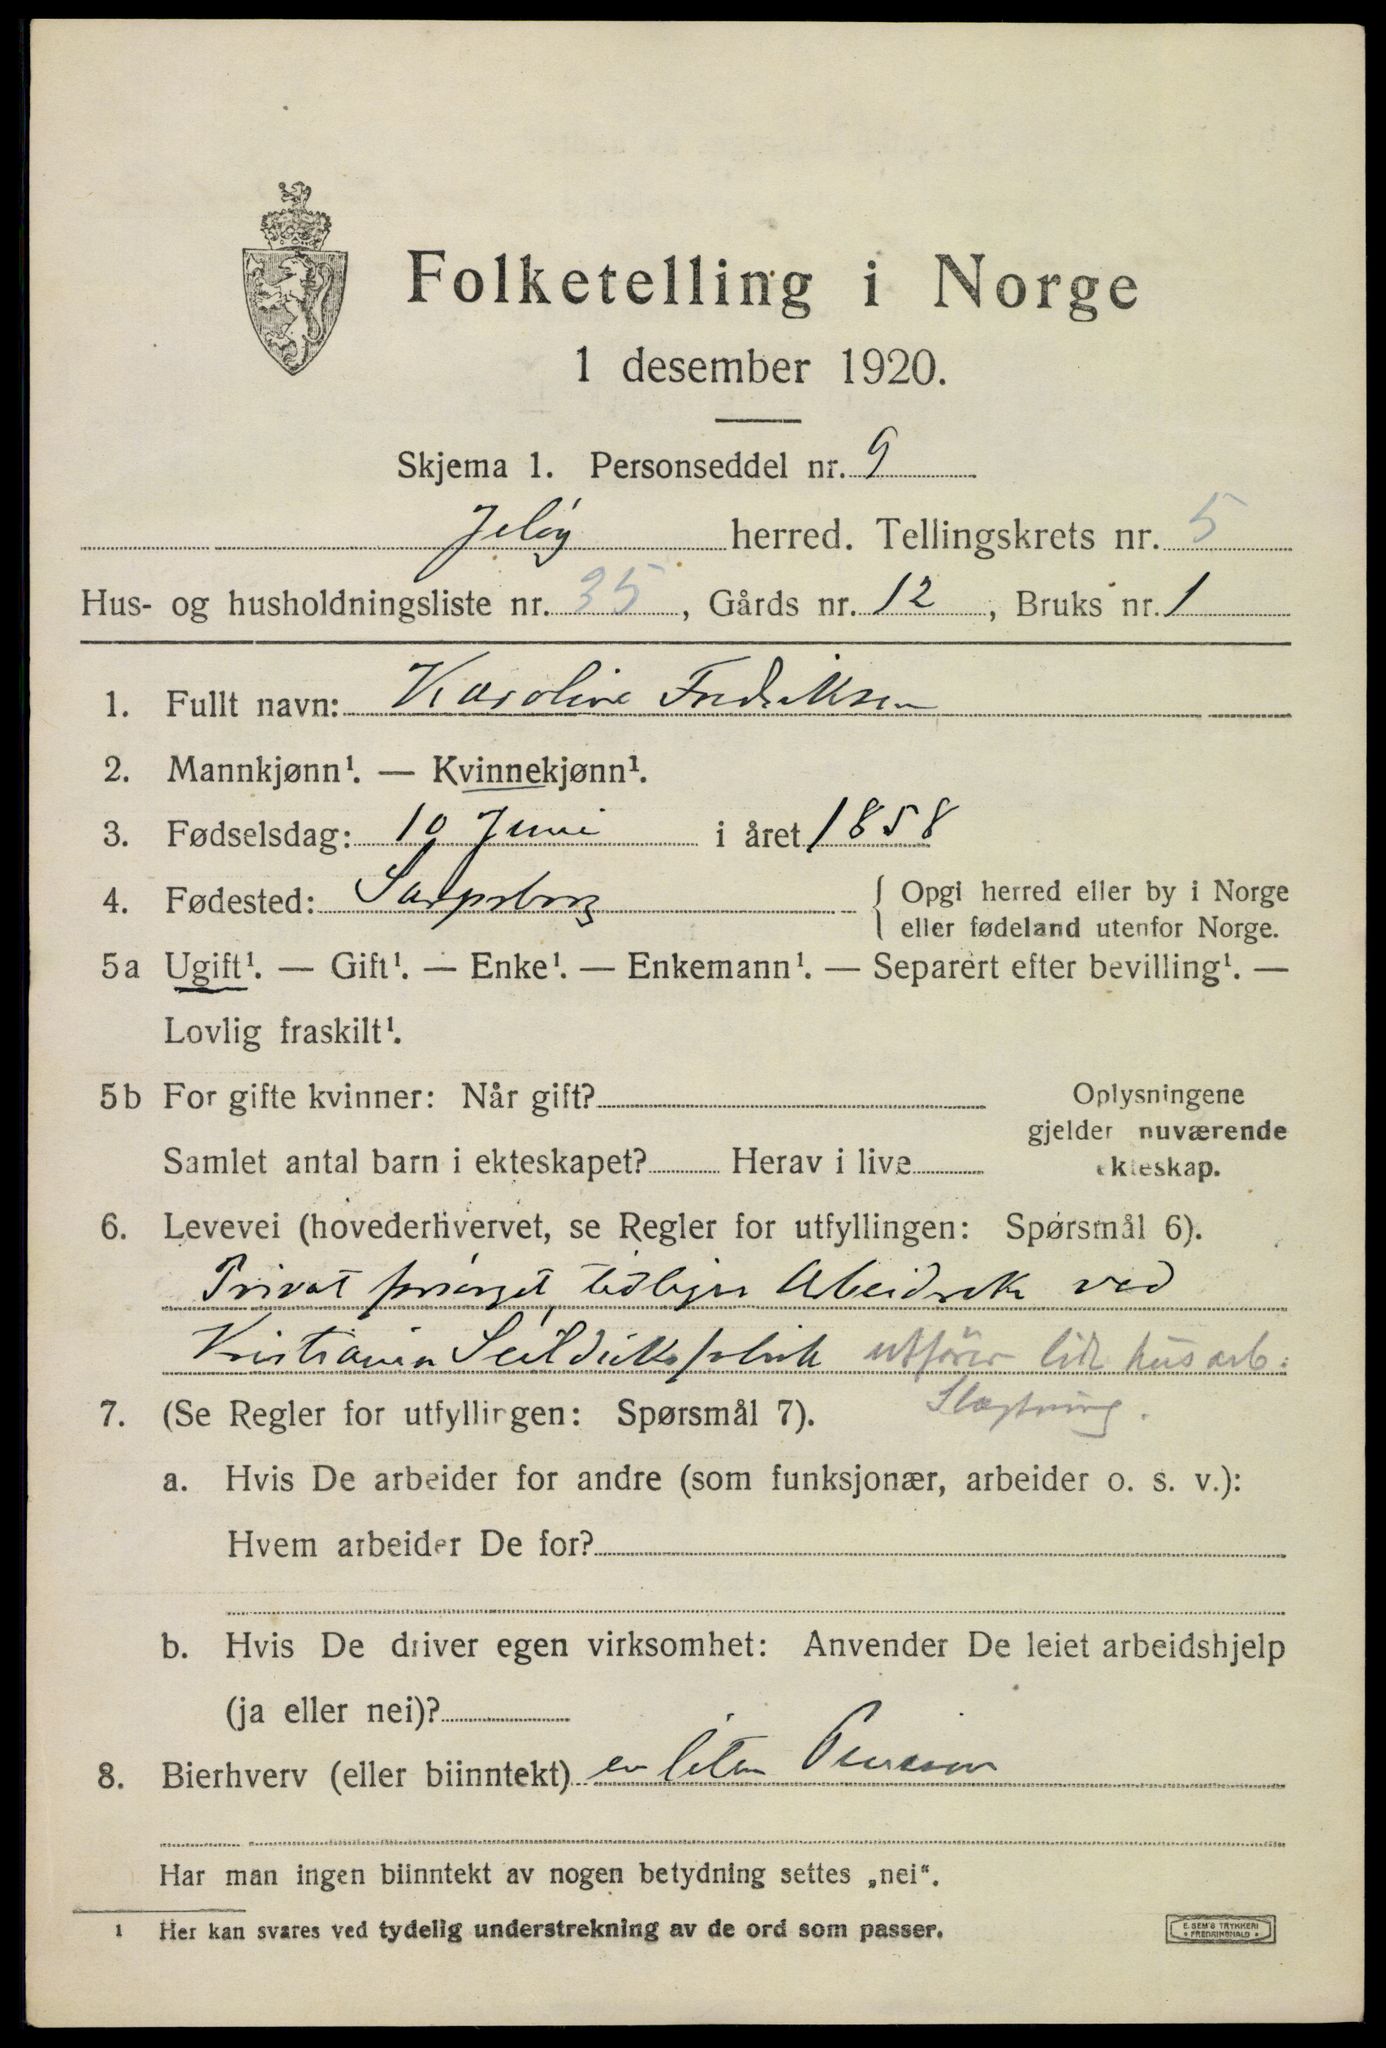 Folketelling i Norge
1 desember 1920.
Skjema 1. Personseddel nr. 9
Jeløy herred. Tellingskrets nr. 5
Hus- og husholdningsliste nr. 35, Gårds nr. 12, Bruks nr. 1
1. Fullt navn: Karoline Fredriksen
2. Mannkjønn¹. — Kvinnekjønn¹.
3. Fødselsdag: 10 Juni i året 1858
4. Fødested: Sarpsborg { Opgi herred eller by i Norge
eller fødeland utenfor Norge.
5a Ugift¹. — Gift¹. — Enke¹. — Enkemann¹. — Separert efter bevilling¹. —
Lovlig fraskilt¹.
5b For gifte kvinner: Når gift? Oplysningene
gjelder nuværende
Samlet antal barn i ekteskapet? Herav i live ekteskap.
6. Levevei (hovederhvervet, se Regler for utfyllingen: Spørsmål 6).
Privat forsørget, tidligere Arbeiderske ved
Kristiania Seildukfabrik utfører lidt husarb.
7. (Se Regler for utfyllingen: Spørsmål 7). Slægtning.
a. Hvis De arbeider for andre (som funksjonær, arbeider o. s. v.):
Hvem arbeider De for?
b. Hvis De driver egen virksomhet: Anvender De leiet arbeidshjelp
(ja eller nei)?
8. Bierhverv (eller biinntekt) en liten Pension
Har man ingen biinntekt av nogen betydning settes „nei“.
¹ Her kan svares ved tydelig understrekning av de ord som passer.
E. SEM'S TRYKKERI
FREDRIKSHALD